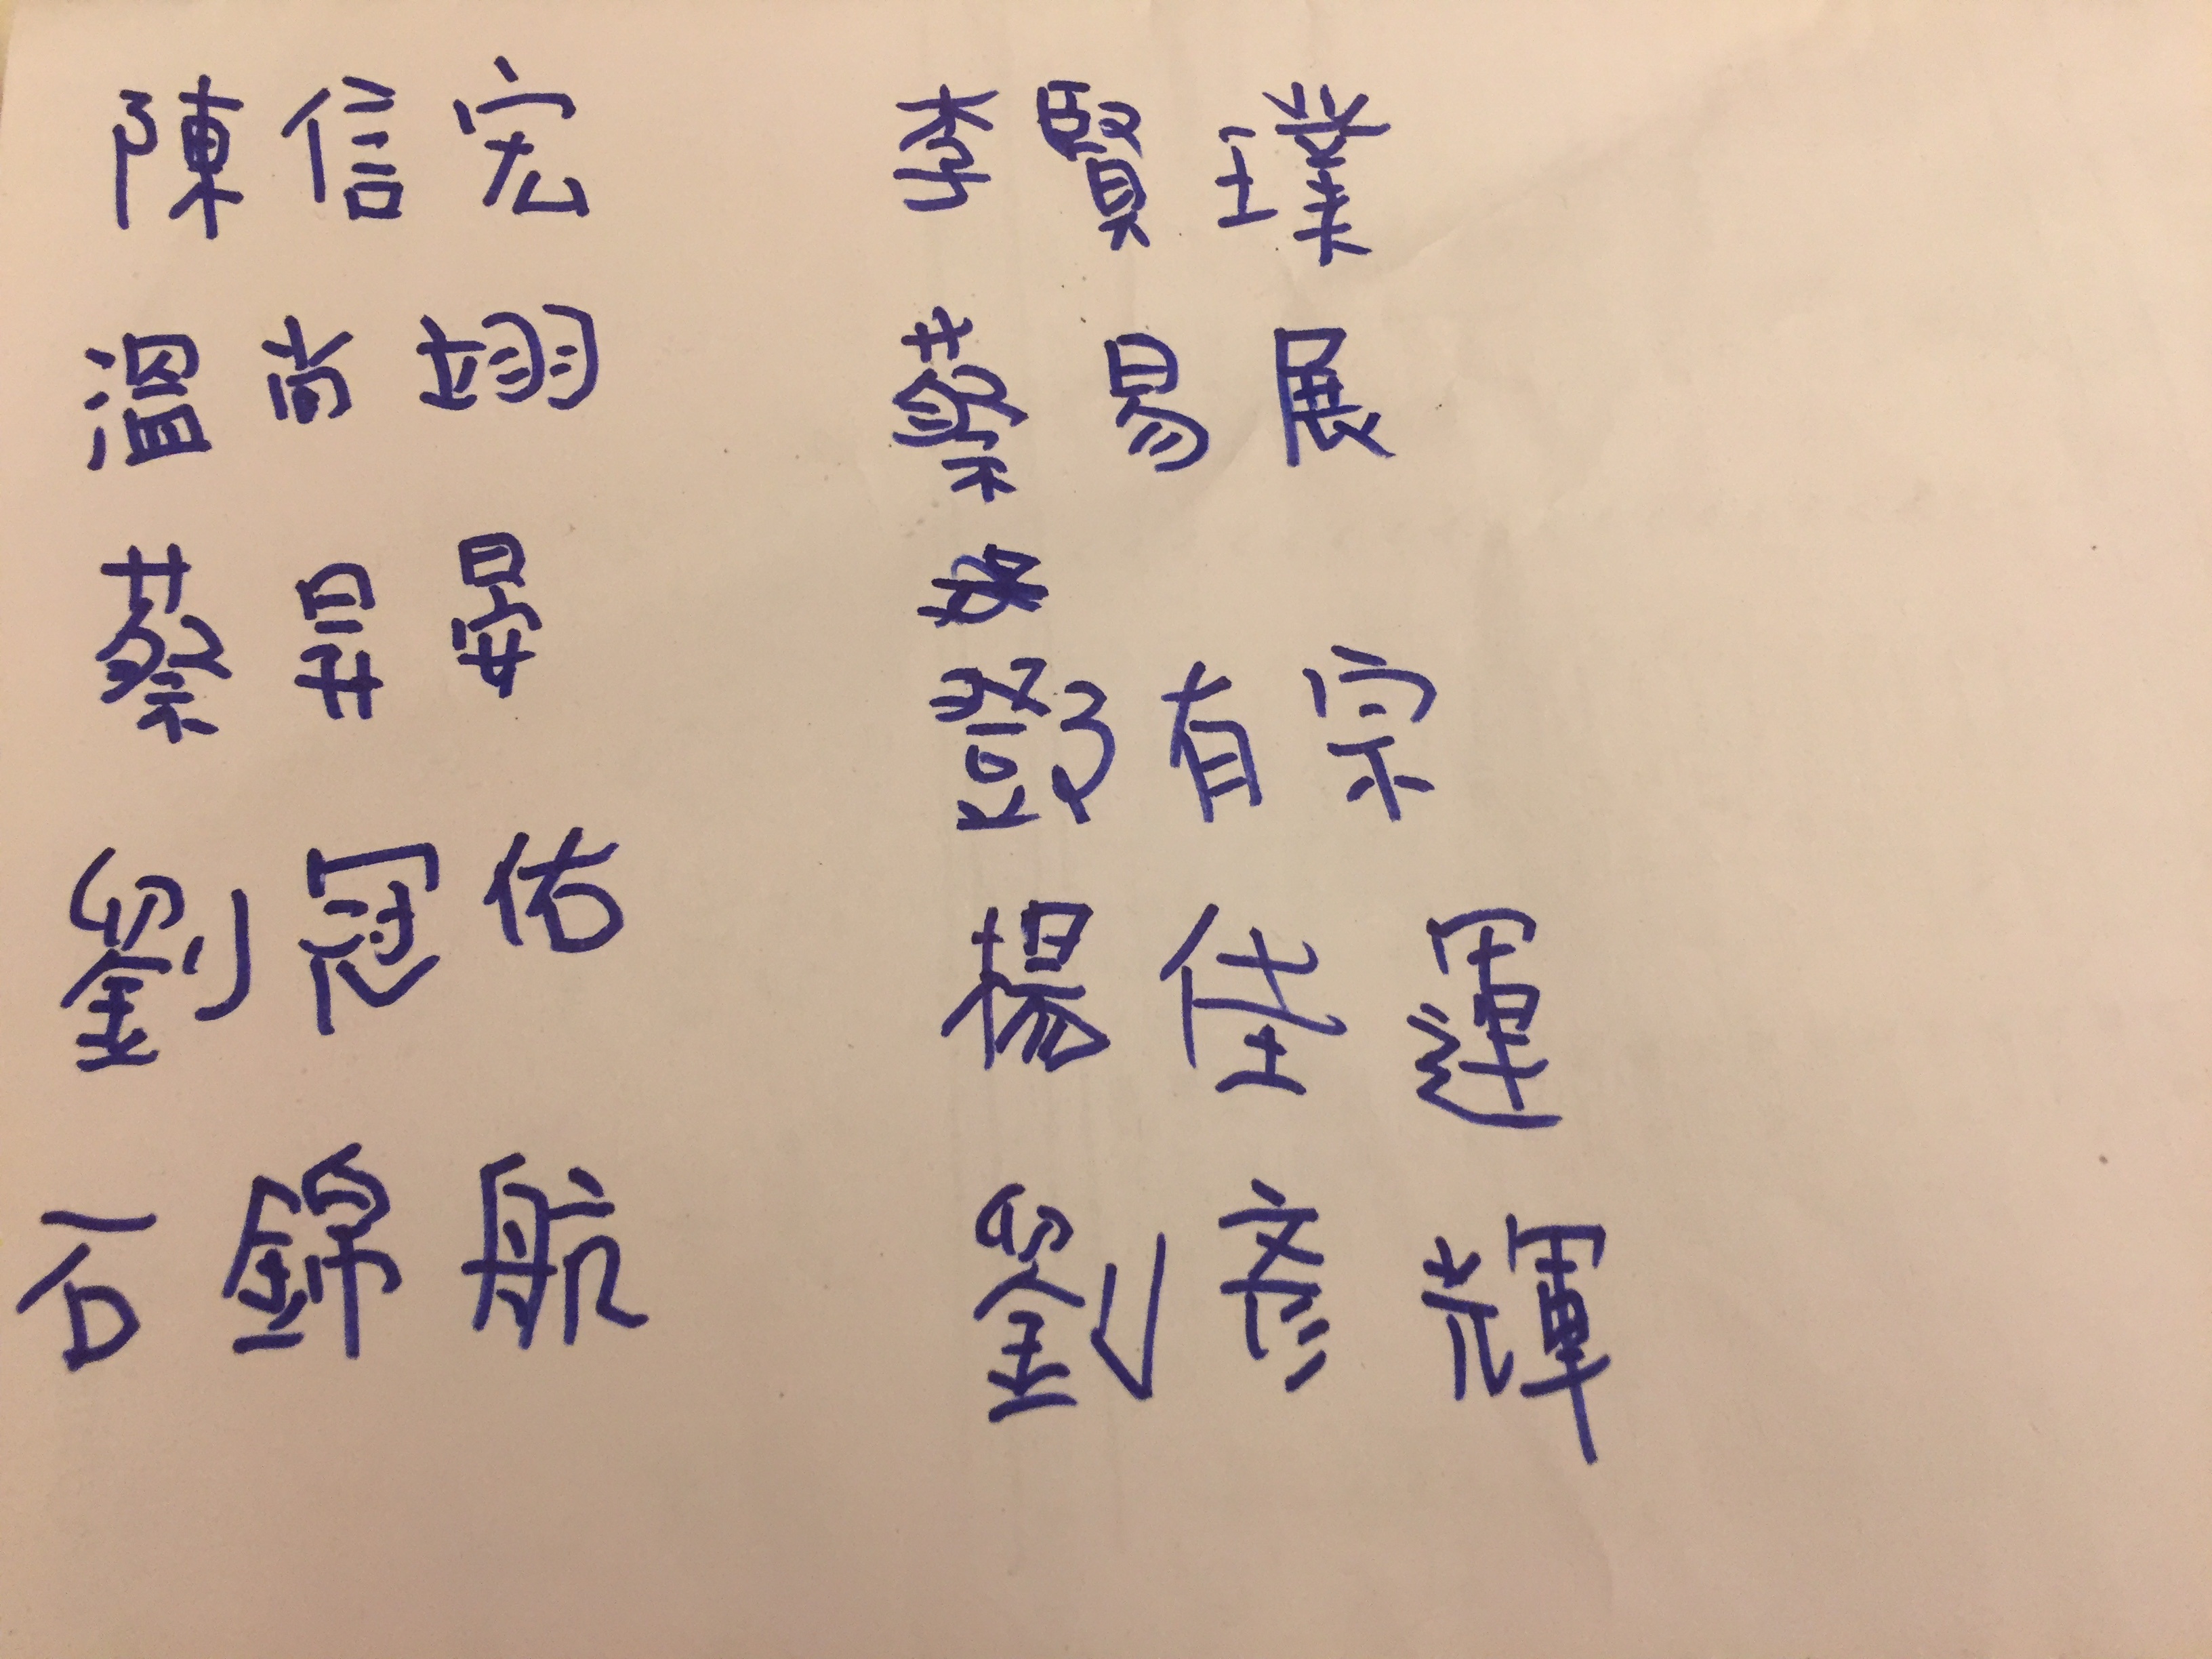 陳信宏
溫尚翊
蔡昇晏
劉冠佑
石錦航
李賢璞
蔡易展
鄧有宗
楊佳運
劉彥輝